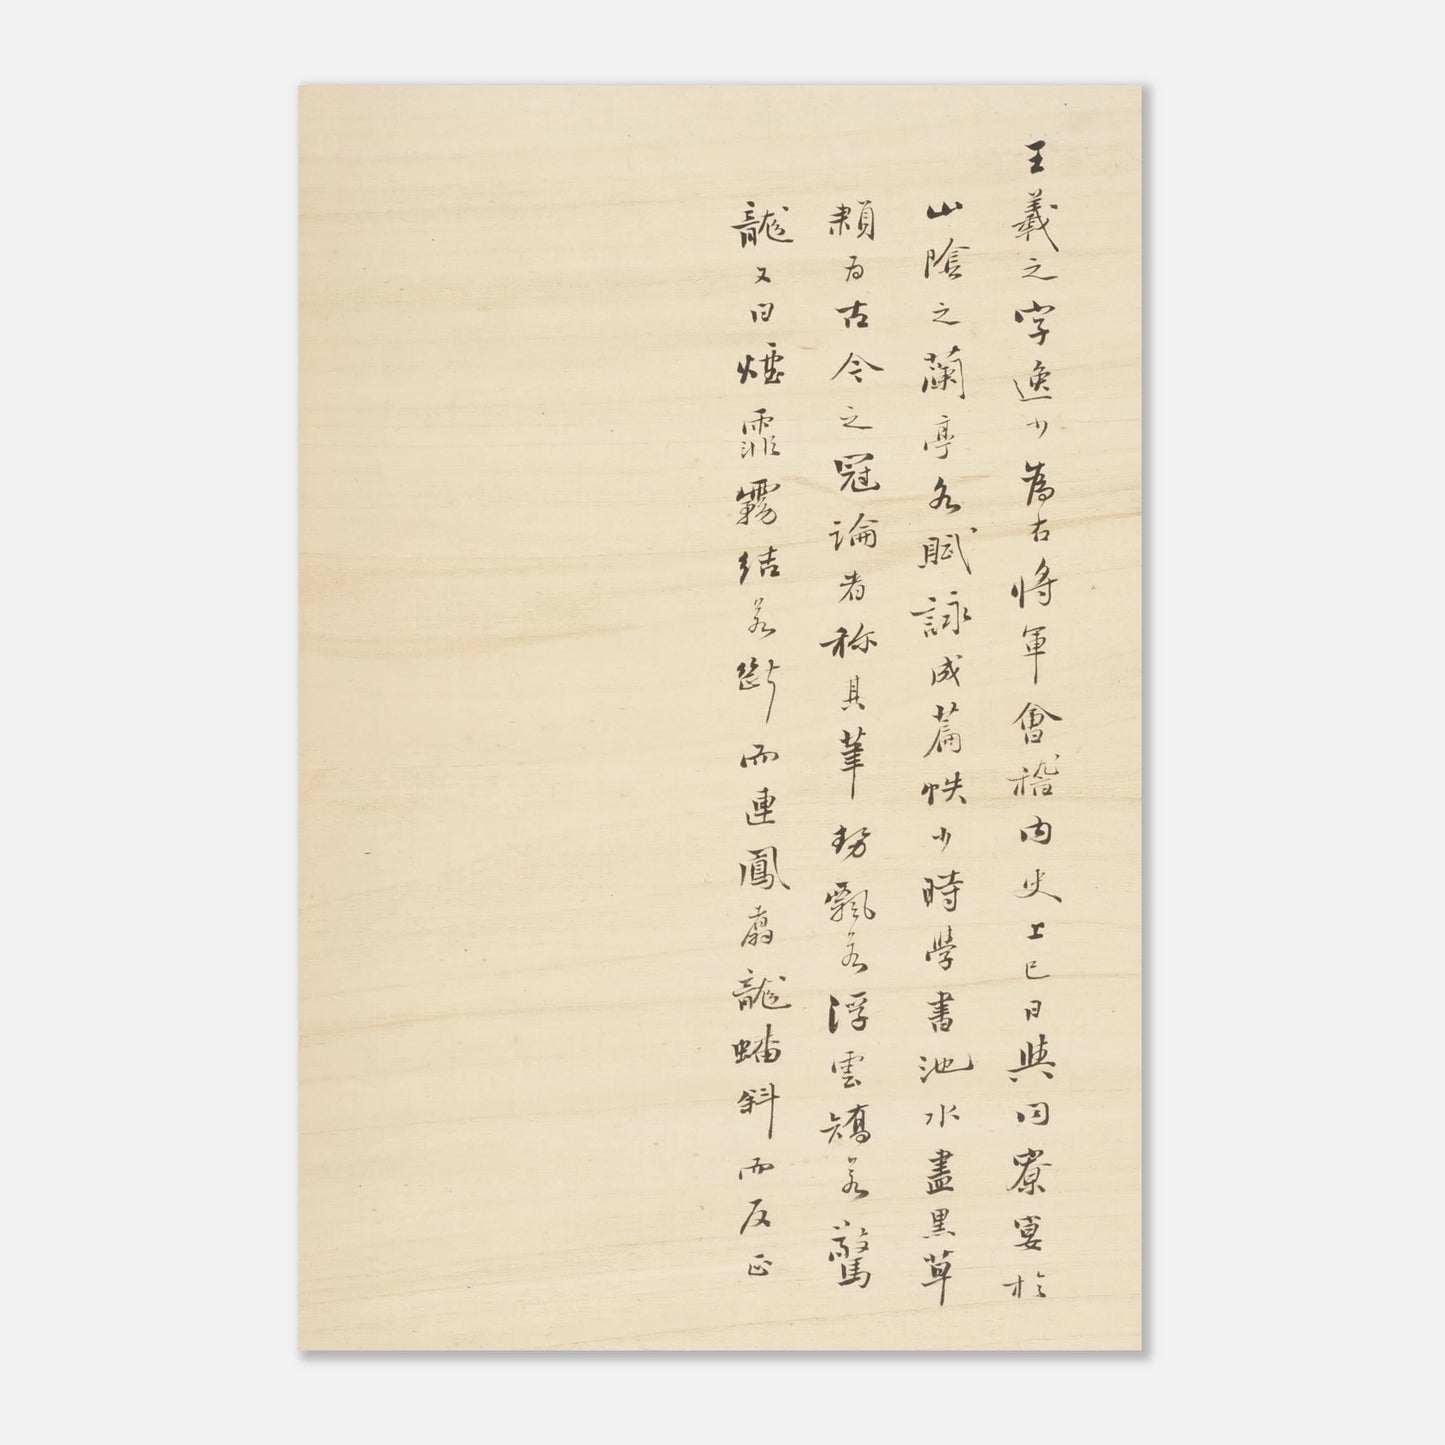 王羲之字逸少為右將軍會稽内史上巳日與同寮宴於
山陰之蘭亭各賦詠成篇帙少時學書池水盡黑草
隸為古今之冠論者称其筆勢飄若浮雲矯若驚
龍又曰煙霏霧結若斷而連鳳翥龍蟠斜而反正